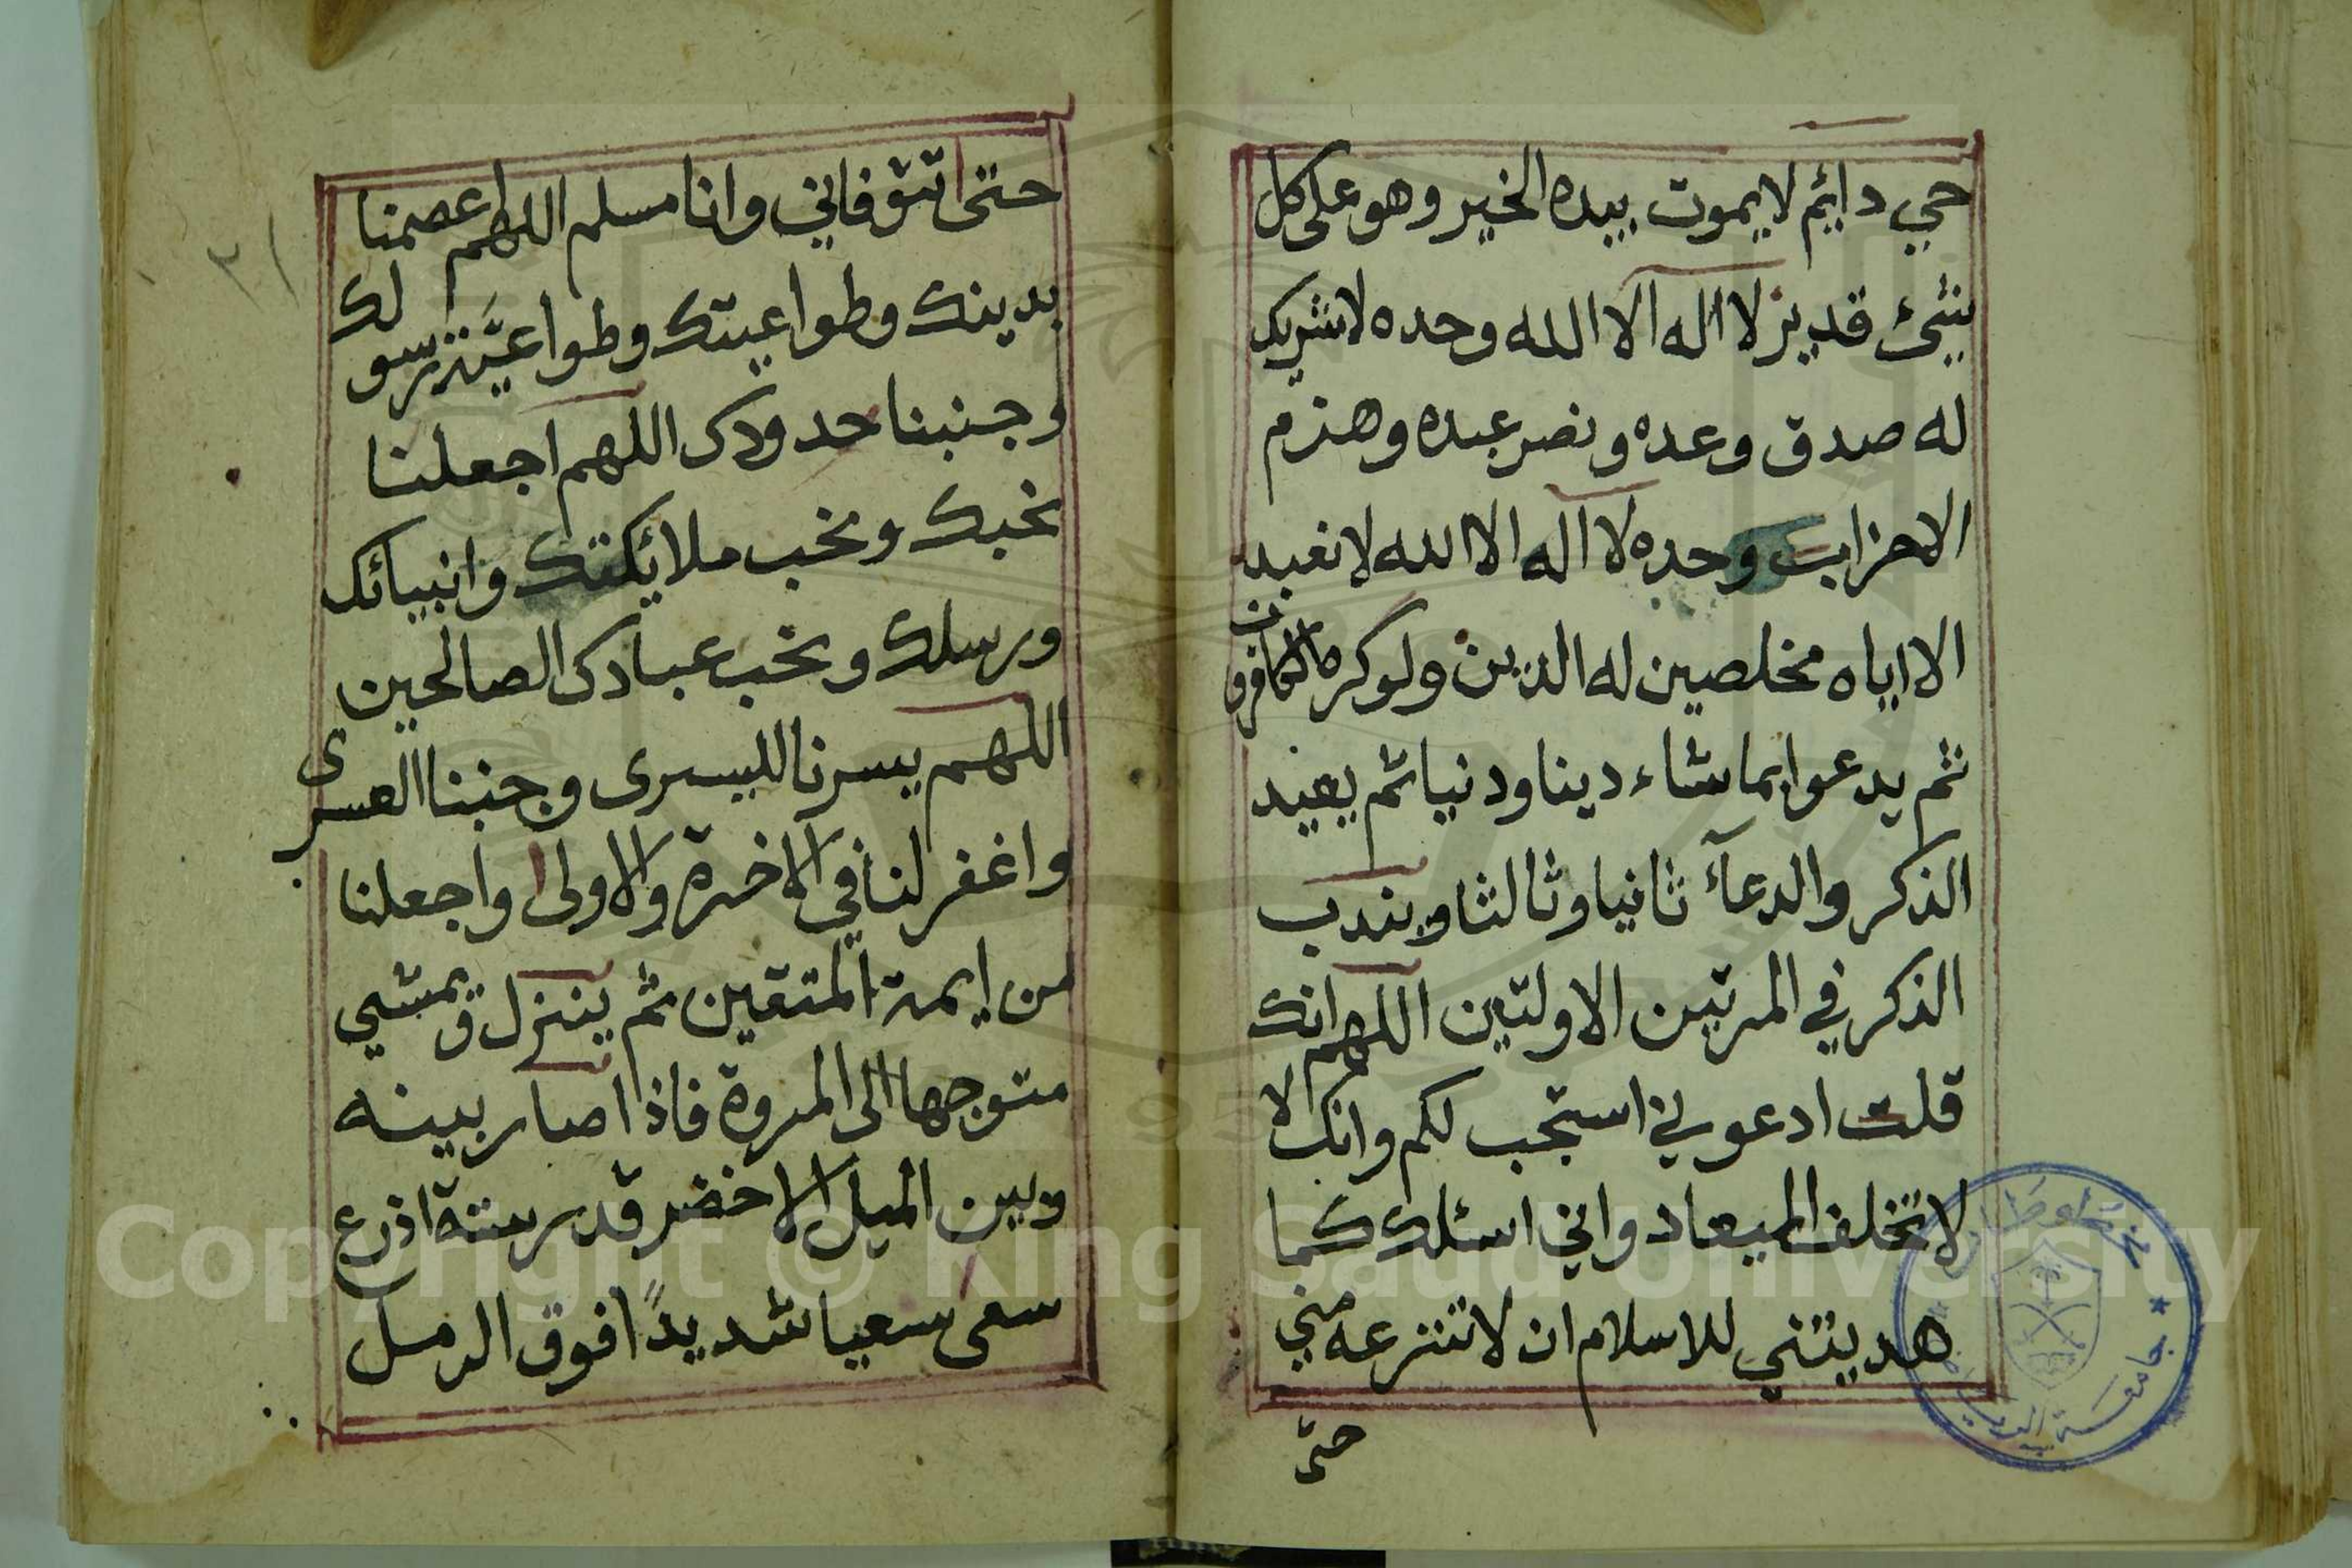 حي دايم لا يموت بيده الخير وهو على كل
شئ قدير لا اله الا الله وحده لا شريك
له صدق وعده ونصر عبده وهزم
الاحزاب وحده لا اله الا الله لا نعبد
الا اياه مخلصين له الدين ولو كره الكافرون
ثم يدعوا بما شاء دينا ودنيا ثم يعيد
الذكر والدعآء ثانيا وثالثا ويندب
الذكر في المرتين الاولتين اللهم انك
قلت ادعوني استجب لكم وانك لا
لا تخلف الميعاد واني اسئلك كما
هديتني للاسلام ان لا تنزعه مني
حتى
٢١
حتى تتوفاني وانا مسلم اللهم اعصمنا
بدينك وطواعيتك وطواعيَّة رسولك
وجنبنا حدودك اللهم اجعلنا
نحبك ونحب ملائكتك وانبيائك
ورسلك ونحب عبادك الصالحين
اللهم يسرنا لليسرى وجنبنا العسرى
واغفر لنا في الاخرة والاولى واجعلنا
من ايمة المتقين ثم ينزل ويمشي
متوجها الى المروة فاذا صار بينه
وبين الميل الاخضر قدر ستة اذرع
سعى سعيا شديدًا فوق الرمل
جامعة الرياض
Copyright © King Saud University